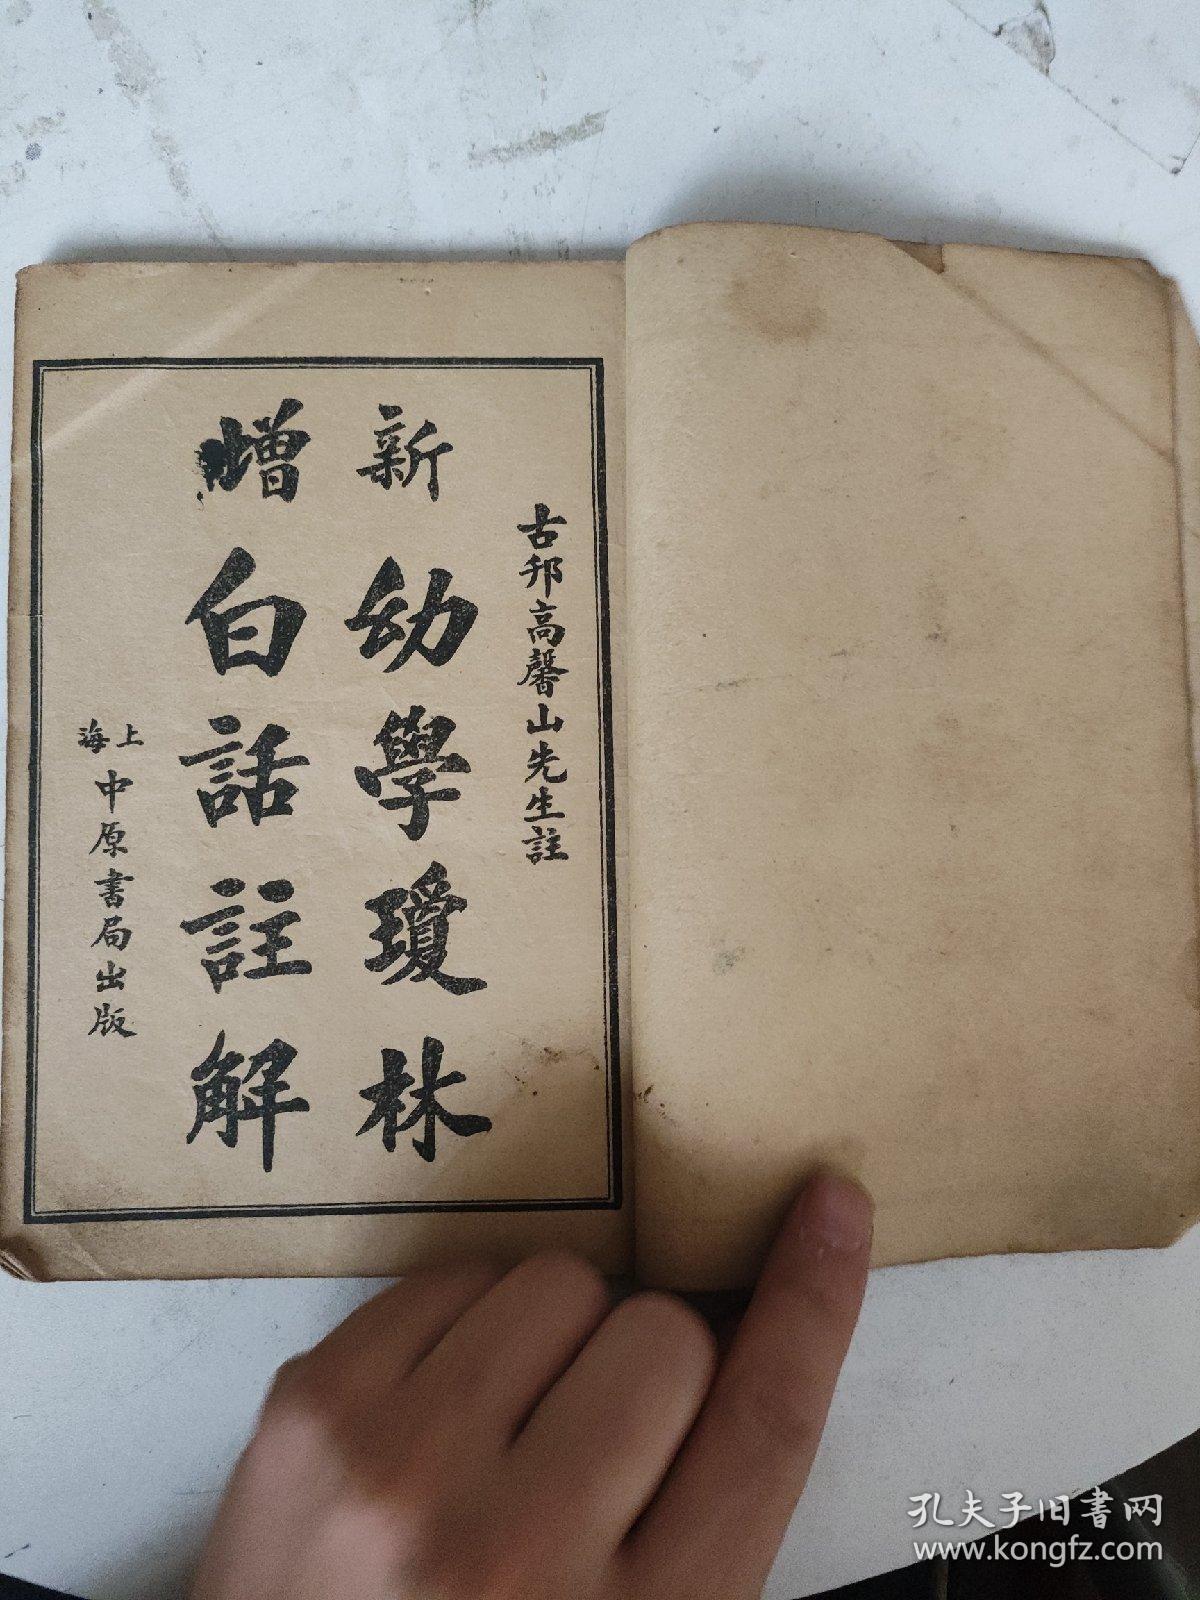 古邦高馨山先生註
新
增
幼學瓊林
白話註解
上海
中原書局出版
孔夫子旧書网
www.kongfz.com